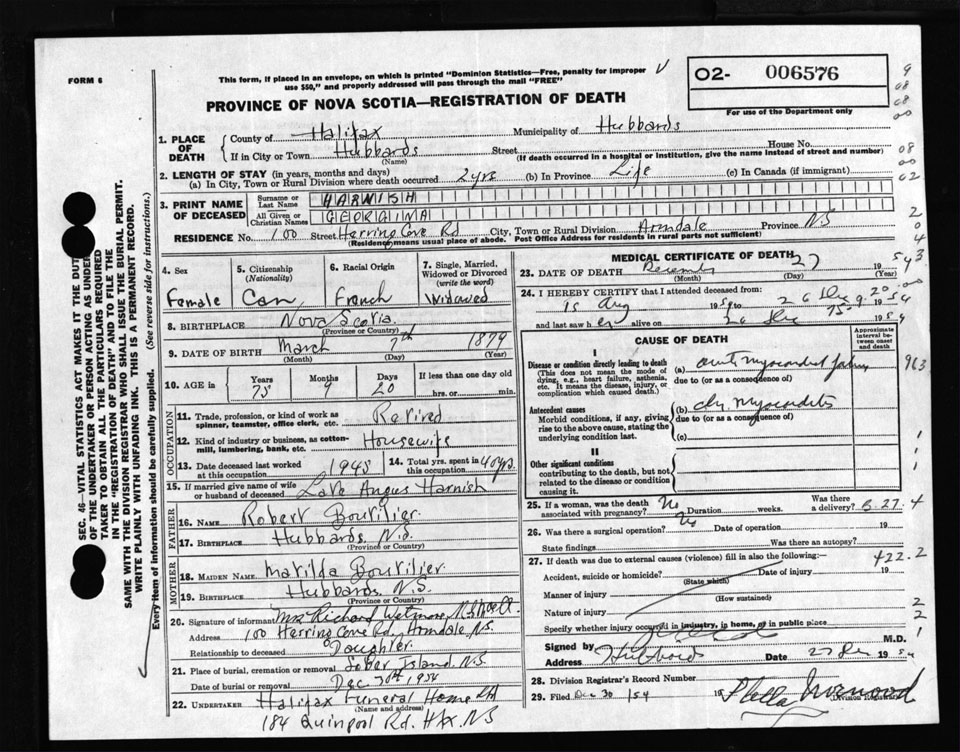 FORM 6
This form, if placed in an envelope, on which is printed "Dominion Statistics—Free, penalty for improper
use $50," and properly addressed will pass through the mail "FREE"
O2- 006576
For use of the Department only
PROVINCE OF NOVA SCOTIA—REGISTRATION OF DEATH
SEC. 46—VITAL STATISTICS ACT MAKES IT THE DUTY
OF THE UNDERTAKER OR PERSON ACTING AS UNDER
TAKER TO OBTAIN ALL THE PARTICULARS REQUIRED
IN THE "REGISTRATION OF DEATH" AND TO FILE THE
SAME WITH THE DIVISION REGISTRAR WHO SHALL ISSUE THE BURIAL PERMIT.
WRITE PLAINLY WITH UNFADING INK. THIS IS A PERMANENT RECORD.
Every item of information should be carefully supplied. (See reverse side for instructions.)
1. PLACE OF DEATH
County of Halifax Municipality of Hubbards
If in City or Town Hubbards Street House No.
(Name) (If death occurred in a hospital or institution, give the name instead of street and number)
2. LENGTH OF STAY (in years, months and days)
(a) In City, Town or Rural Division where death occurred 2 yrs (b) In Province Life (c) In Canada (if immigrant)
3. PRINT NAME OF DECEASED
Surname or Last Name HARNISH
All Given or Christian Names GEORGINA
RESIDENCE No. 100 Street Herring Cove Rd City, Town or Rural Division Armdale Province N.S
(Residency means usual place of abode. Post Office Address for residents in rural parts not sufficient)
4. Sex
Female
5. Citizenship (Nationality)
Can
6. Racial Origin
French
7. Single, Married, Widowed or Divorced (write the word)
Widowed
8. BIRTHPLACE Nova Scotia
(Province or Country)
9. DATE OF BIRTH March 7th 1879
(Month) (Day) (Year)
10. AGE in Years Months Days If less than one day old
75 9 20 hrs. or min.
OCCUPATION
11. Trade, profession, or kind of work as
spinner, teamster, office clerk, etc. Retired
12. Kind of industry or business, as cotton-
mill, lumbering, bank, etc. Housewife
13. Date deceased last worked
at this occupation 1945
14. Total yrs. spent in
this occupation 40 yrs.
15. If married give name of wife
or husband of deceased Late Angus Harnish
FATHER
16. NAME Robert Boutilier
17. BIRTHPLACE Hubbards N.S.
(Province or Country)
MOTHER
18. MAIDEN NAME Matilda Boutilier
19. BIRTHPLACE Hubbards N.S.
(Province or Country)
20. Signature of informant Mrs Richard Wetmore
Address 100 Herring Cove Rd. Armdale N.S.
Relationship to deceased Daughter
21. Place of burial, cremation or removal Sober Island N.S.
Date of burial or removal Dec 30th 1954
22. UNDERTAKER Halifax Funeral Home Ltd
(Name and address)
184 Quinpool Rd. Hfx. N.S
MEDICAL CERTIFICATE OF DEATH
23. DATE OF DEATH December 27 1954
(Month) (Day) (Year)
24. I HEREBY CERTIFY that I attended deceased from:
15 Aug 1954 to 26 Dec 1954
and last saw her alive on 26 Dec 1954
CAUSE OF DEATH
Approximate interval between onset and death
I
Disease or condition directly leading to death
(This does not mean the mode of
dying, e.g., heart failure, asthenia,
etc. It means the disease, injury, or
complication which caused death.)
(a) acute myocardial failure
due to (or as a consequence of)
Antecedent causes
Morbid conditions, if any, giving
rise to the above cause, stating the
underlying condition last.
(b) chr. myocarditis
due to (or as a consequence of)
(c)
II
Other significant conditions
contributing to the death, but not
related to the disease or condition
causing it.
25. If a woman, was the death
associated with pregnancy? No Duration weeks. Was there a delivery?
26. Was there a surgical operation? No Date of operation 19
State findings Was there an autopsy?
27. If death was due to external causes (violence) fill in also the following:—
422.2
Accident, suicide or homicide? Date of injury 19
(State which)
Manner of injury
(How sustained)
Nature of injury
Specify whether injury occurred in industry, in home, or in public place
Signed by M.D.
Address Hubbards Date 27 Dec 1954
28. Division Registrar's Record Number
29. Filed Dec 30/54 19
Division Registrar